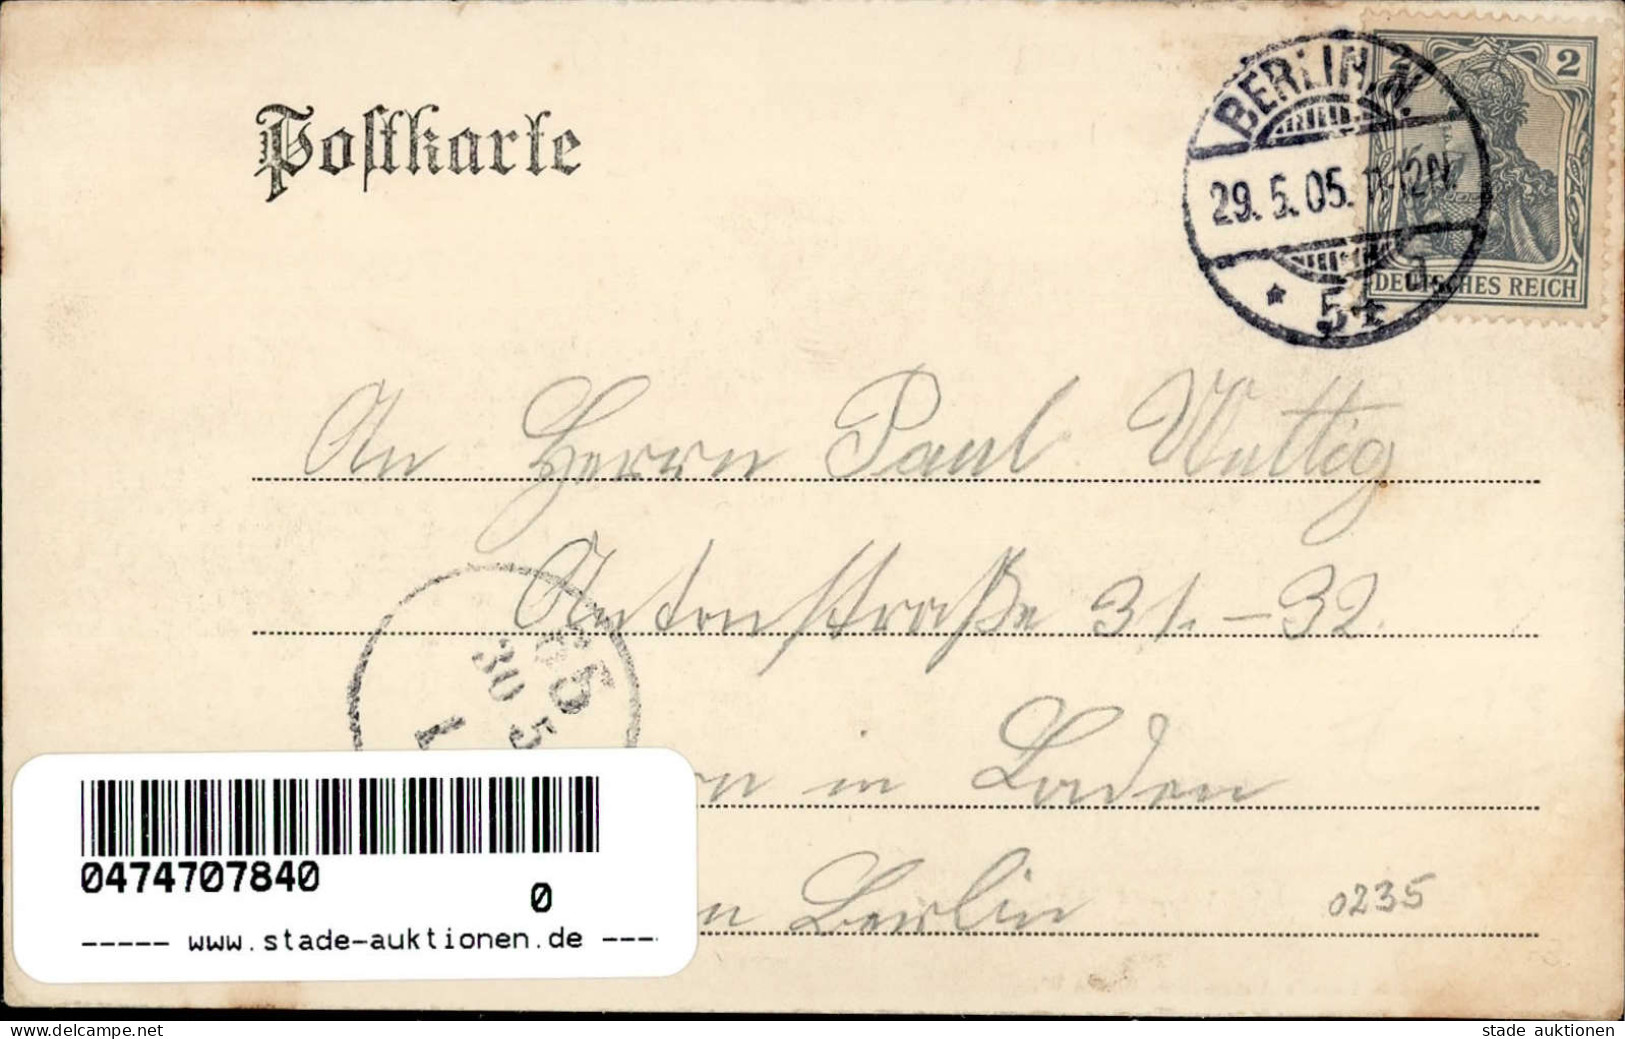 Postkarte
BERLIN N.
29. 5. 05. 11-12N.
* 54 a.
2
DEUTSCHES REICH
An Herrn Paul Wuttig
Antonstraße 31.-32.
in Laden
in Berlin
65
30 5
1
0235
0474707840
0
----- www.stade-auktionen.de ----
stade auktionen